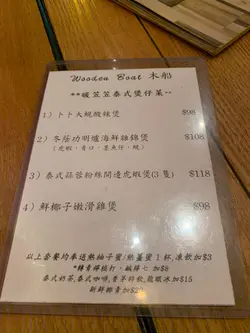 Wooden Boat 木船
**暖笠笠泰式煲仔菜**
1) 卜卜大蜆酸辣煲 $98
2) 冬蔭功明爐海鮮雞煲 $108
(虎蝦,青口,墨魚仔,蜆)
3) 泰式蒜蓉粉絲開邊虎蝦煲(3隻) $118
4) 鮮椰子嫩滑雞煲 $98
以上套餐均奉送熱柚子蜜/熱薑蜜1杯,凍飲加$3
*轉青檸梳打、鹹檸七 加$8
泰式奶茶,泰式咖啡,香茅特飲,龍眼冰加$15
新鮮椰青加$2